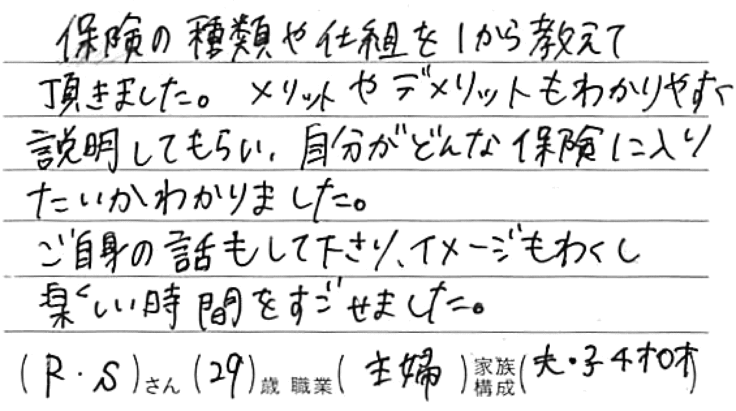 保険の種類や仕組を1から教えて
頂きました。メリットやデメリットもわかりやすく
説明してもらい、自分がどんな保険に入り
たいかわかりました。
ご自身の話もして下さり、イメージもわくし
楽しい時間をすごせました。
(R・S)さん(29)歳 職業(主婦)家族構成(夫・子4才0才)